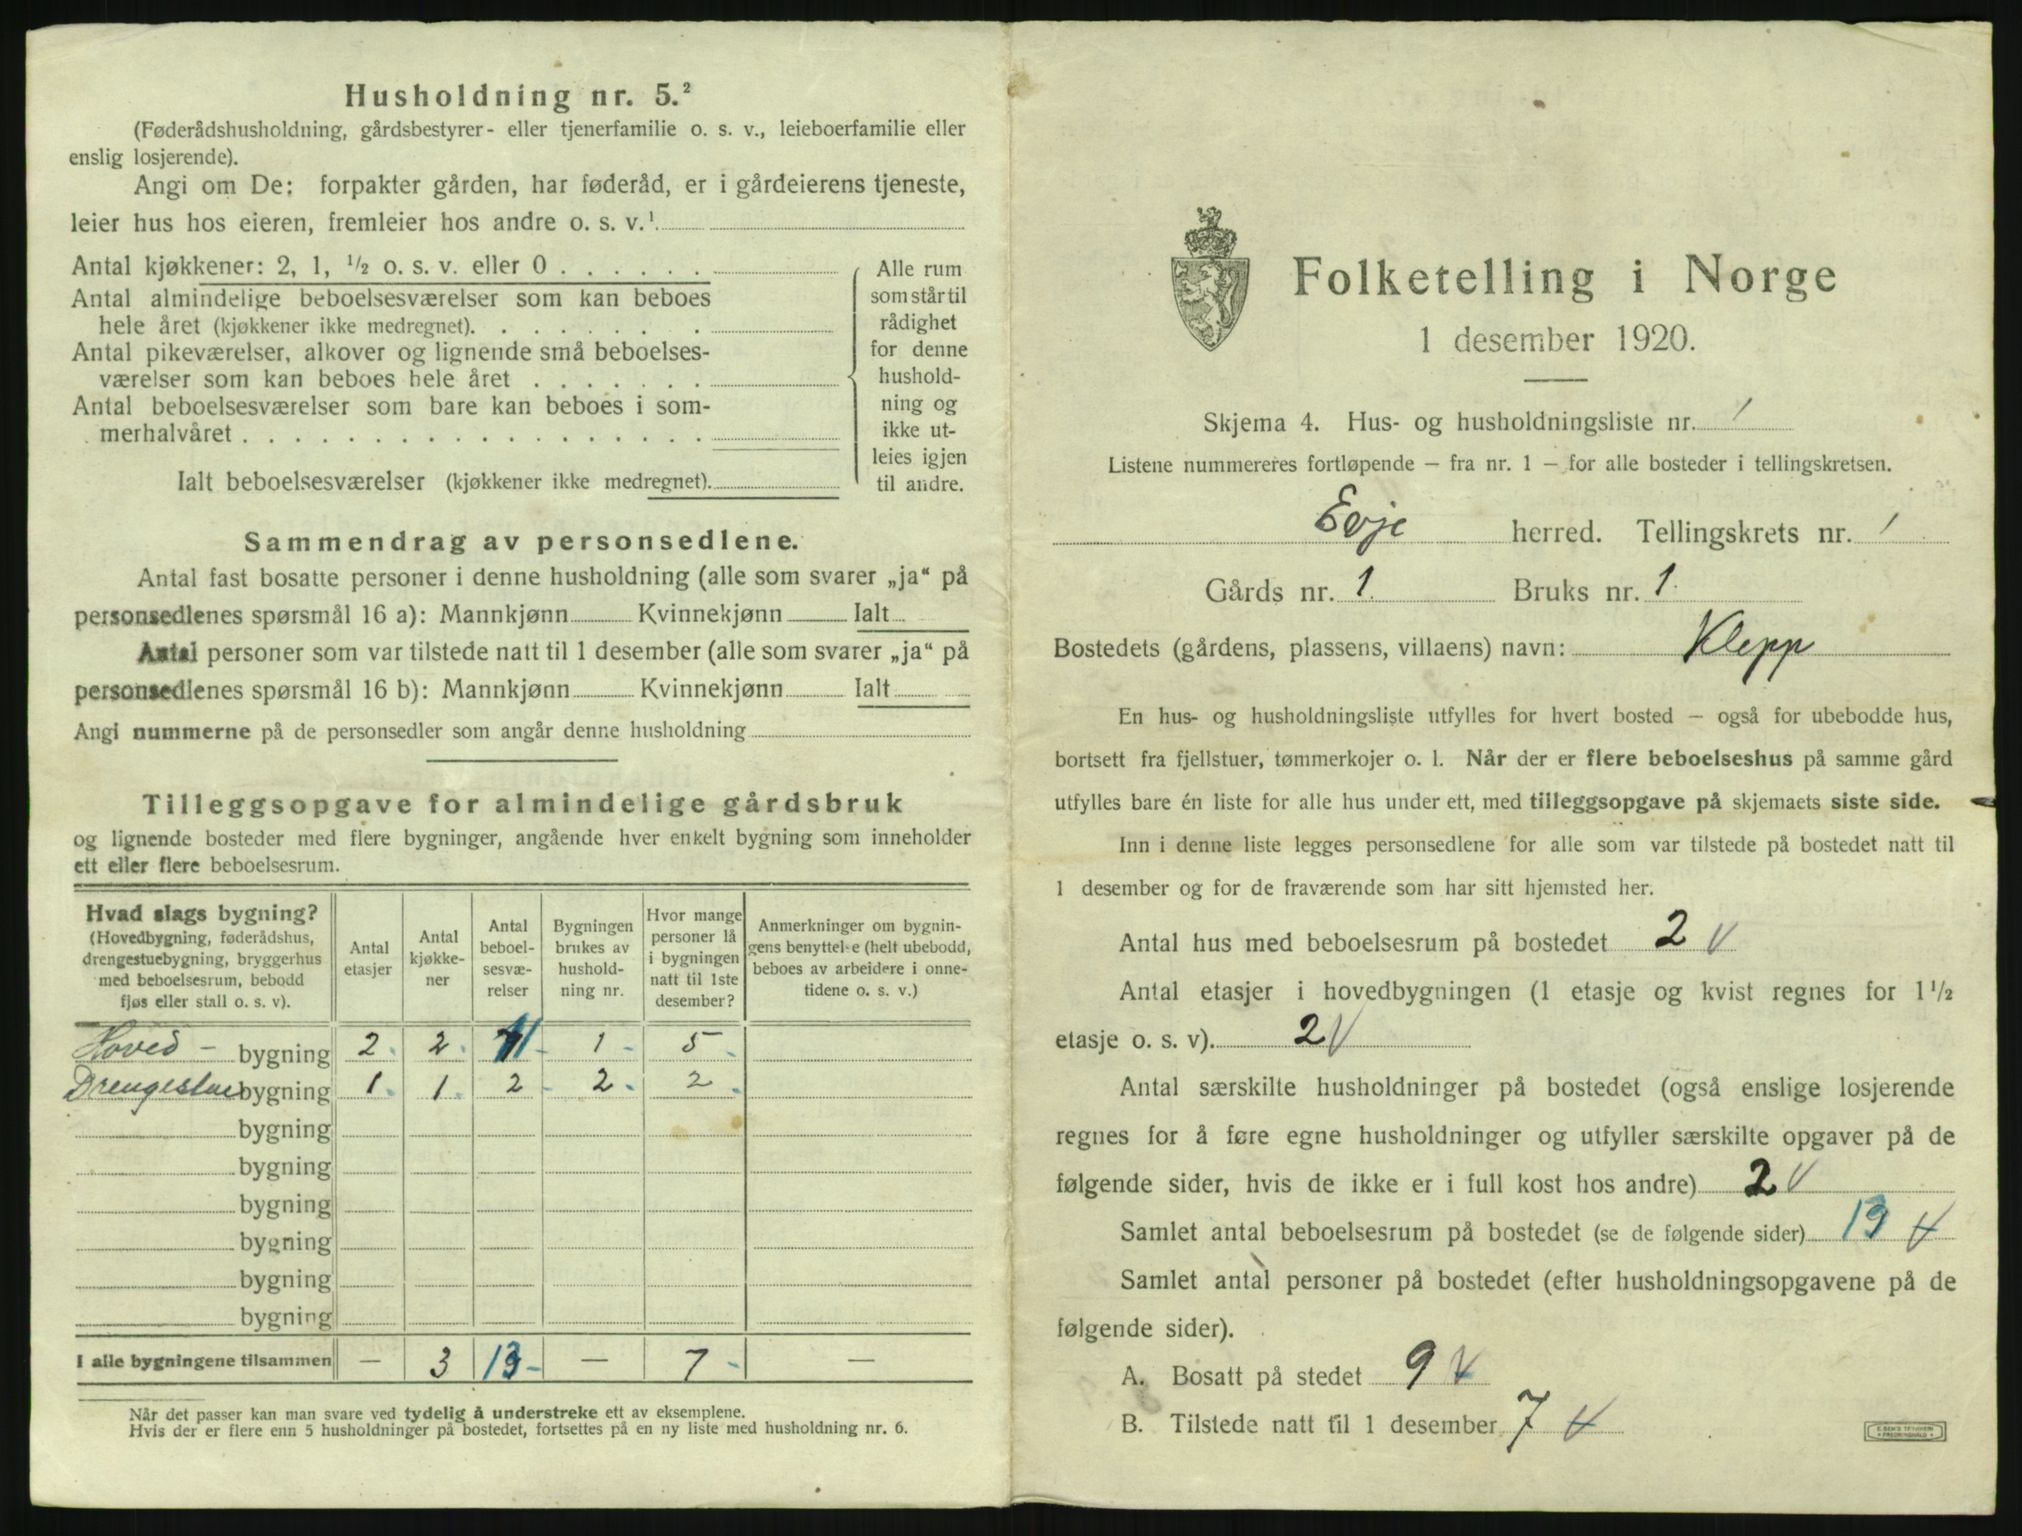 Husholdning nr. 5.²
(Føderådshusholdning, gårdsbestyrer- eller tjenerfamilie o. s. v., leieboerfamilie eller
enslig losjerende).
Angi om De: forpakter gården, har føderåd, er i gårdeierens tjeneste,
leier hus hos eieren, fremleier hos andre o. s. v.¹
Antal kjøkkener: 2, 1, ½ o. s. v. eller 0 . . . . . .
Antal almindelige beboelsesværelser som kan beboes
hele året (kjøkkener ikke medregnet). . . . . . . . .
Antal pikeværelser, alkover og lignende små beboelses-
værelser som kan beboes hele året . . . . . . .
Antal beboelsesværelser som bare kan beboes i som-
merhalvåret . . . . . . . . . . . . . . . . . .
Ialt beboelsesværelser (kjøkkener ikke medregnet).
Alle rum
som står til
rådighet
for denne
hushold-
ning og
ikke ut-
leies igjen
til andre.
Sammendrag av personsedlene.
Antal fast bosatte personer i denne husholdning (alle som svarer „ja“ på
personsedlenes spørsmål 16 a): Mannkjønn Kvinnekjønn Ialt
Antal personer som var tilstede natt til 1 desember (alle som svarer „ja“ på
personsedlenes spørsmål 16 b): Mannkjønn Kvinnekjønn Ialt
Angi nummerne på de personsedler som angår denne husholdning
Tilleggsopgave for almindelige gårdsbruk
og lignende bosteder med flere bygninger, angående hver enkelt bygning som inneholder
ett eller flere beboelsesrum.
Hvad slags bygning?
(Hovedbygning, føderådshus,
drengestuebygning, bryggerhus
med beboelsesrum, bebodd
fjøs eller stall o. s. v).
Antal
etasjer
Antal
kjøkke-
ner
Antal
beboel-
sesvæ-
relser
Bygningen
brukes av
hushold-
ning nr.
Hvor mange
personer lå
i bygningen
natt til 1ste
desember?
Anmerkninger om bygnin-
gens benyttelse (helt ubebodd,
beboes av arbeidere i onne-
tidene o. s. v.)
Hoved - bygning 2 - 2 - 11 - 1 - 5 -
Drengestue bygning 1 - 1 - 2 - 2 - 2 -
bygning
bygning
bygning
bygning
bygning
bygning
I alle bygningene tilsammen — 3 13 - — 7 - —
Når det passer kan man svare ved tydelig å understreke ett av eksemplene.
Hvis der er flere enn 5 husholdninger på bostedet, fortsettes på en ny liste med husholdning nr. 6.
Folketelling i Norge
1 desember 1920.
Skjema 4. Hus- og husholdningsliste nr. 1
Listene nummereres fortløpende – fra nr. 1 – for alle bosteder i tellingskretsen.
Evje herred. Tellingskrets nr. 1
Gårds nr. 1 Bruks nr. 1.
Bostedets (gårdens, plassens, villaens) navn: Klepp
En hus- og husholdningsliste utfylles for hvert bosted – også for ubebodde hus,
bortsett fra fjellstuer, tømmerkojer o. l. Når der er flere beboelseshus på samme gård
utfylles bare én liste for alle hus under ett, med tilleggsopgave på skjemaets siste side.
Inn i denne liste legges personsedlene for alle som var tilstede på bostedet natt til
1 desember og for de fraværende som har sitt hjemsted her.
Antal hus med beboelsesrum på bostedet 2 V
Antal etasjer i hovedbygningen (1 etasje og kvist regnes for 1½
etasje o. s. v). 2 V
Antal særskilte husholdninger på bostedet (også enslige losjerende
regnes for å føre egne husholdninger og utfyller særskilte opgaver på de
følgende sider, hvis de ikke er i full kost hos andre) 2 V
Samlet antal beboelsesrum på bostedet (se de følgende sider) 13 V
Samlet antal personer på bostedet (efter husholdningsopgavene på de
følgende sider).
A. Bosatt på stedet 9 V
B. Tilstede natt til 1 desember 7 V